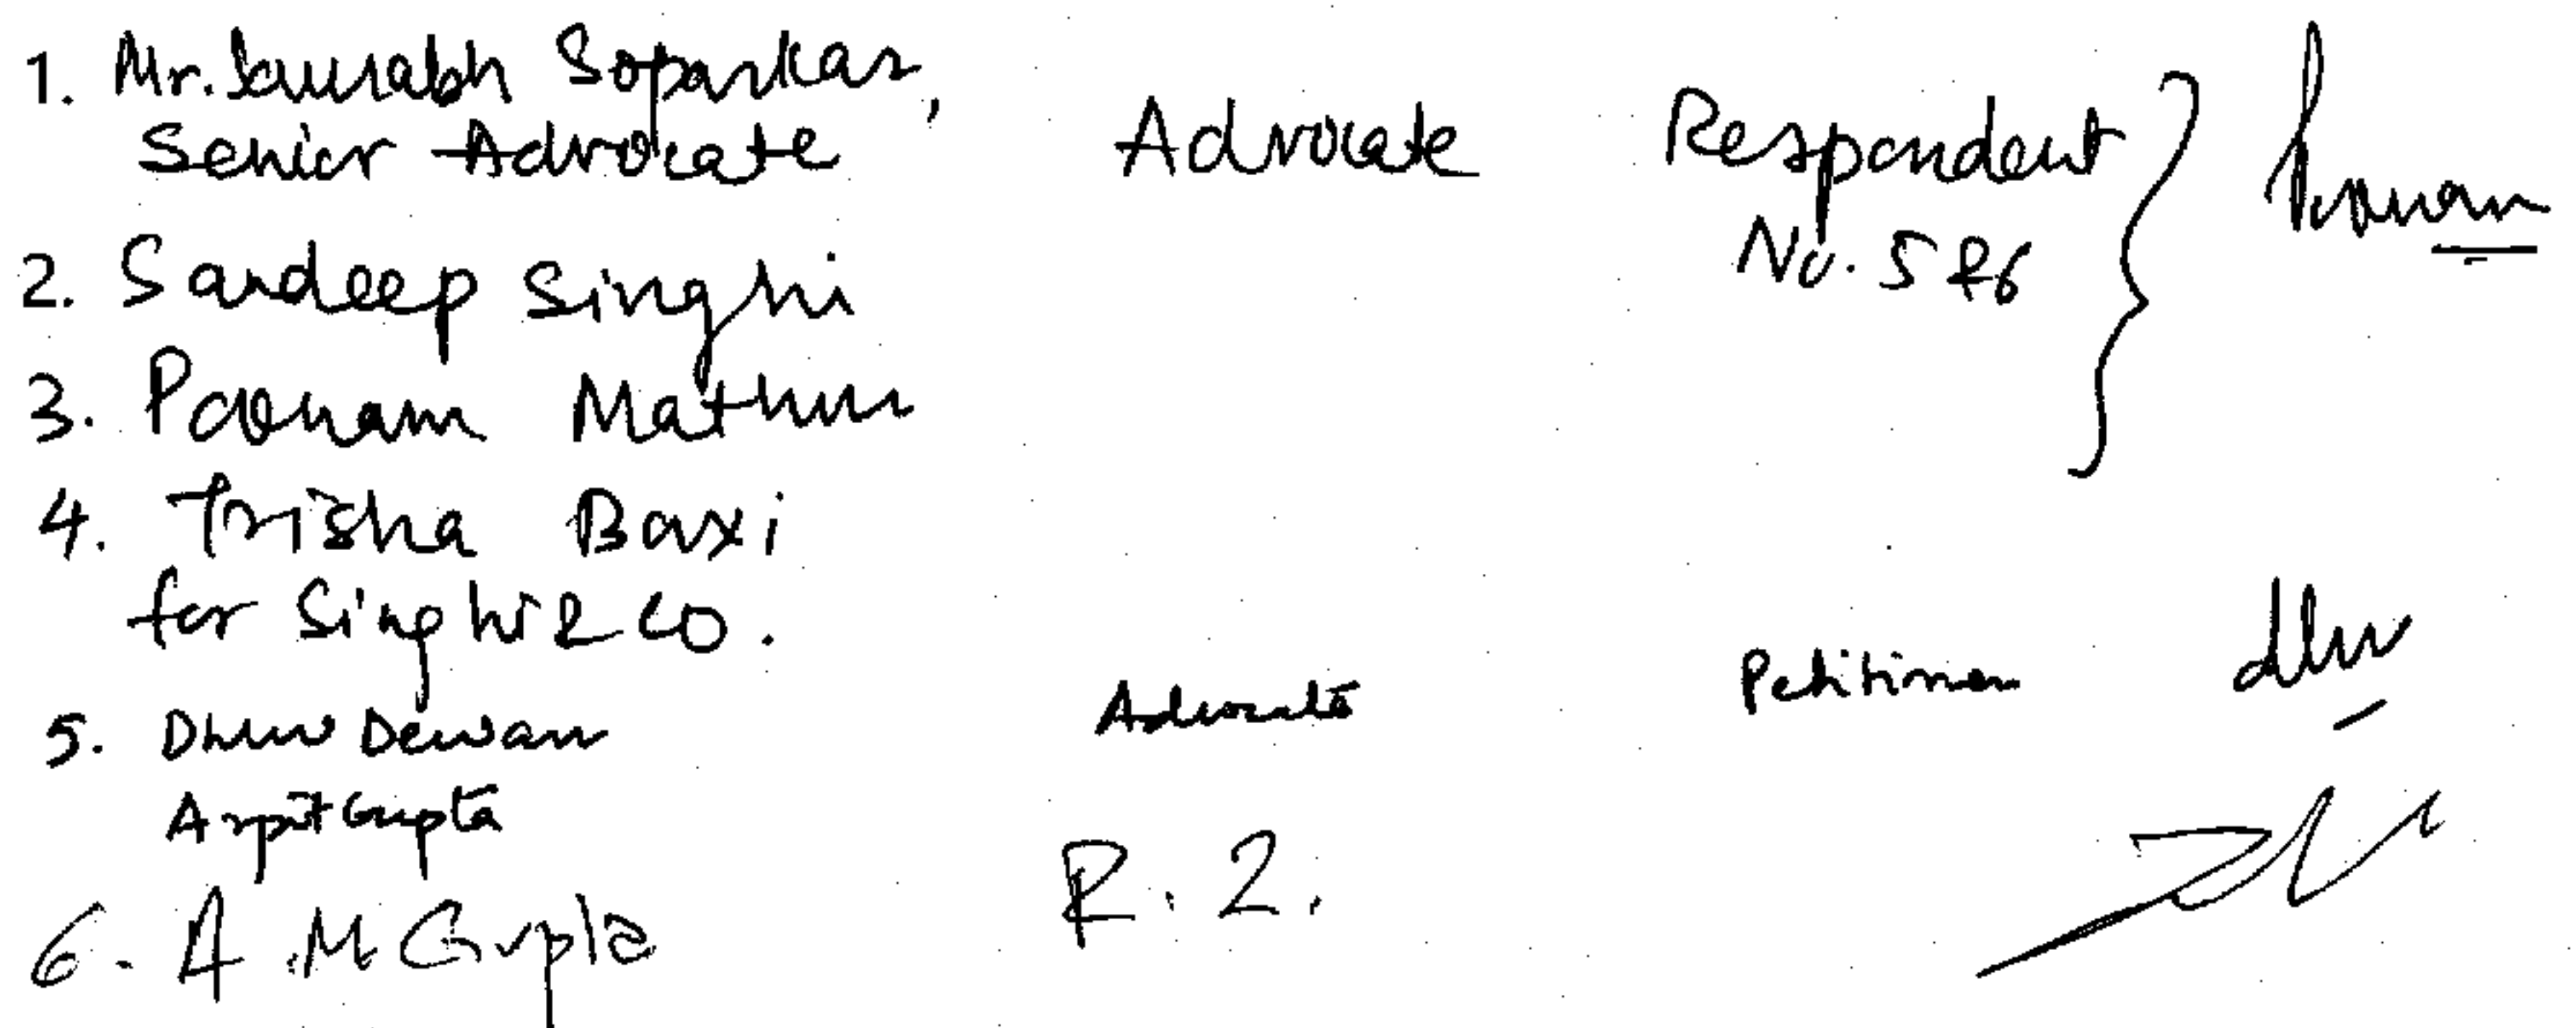 1. Mr. Saurabh Soparkar,
Senior Advocate Advocate Respondent
No. 5 & 6 Poonam
2. Sandeep Singhi
3. Poonam Mathur
4. Trisha Baxi
for Singhi & Co.
5. Dhruv Dewan Advocate Petitioner
Arpit Gupta
6. A. M Gupta R. 2.